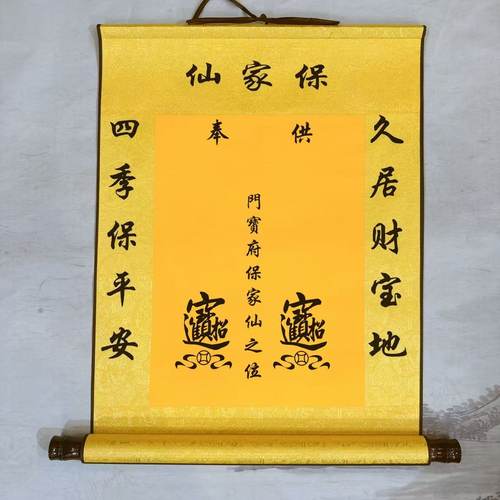 保家仙
久居财宝地
供奉
門寶府保家仙之位
招財進寶
招財進寶
四季保平安